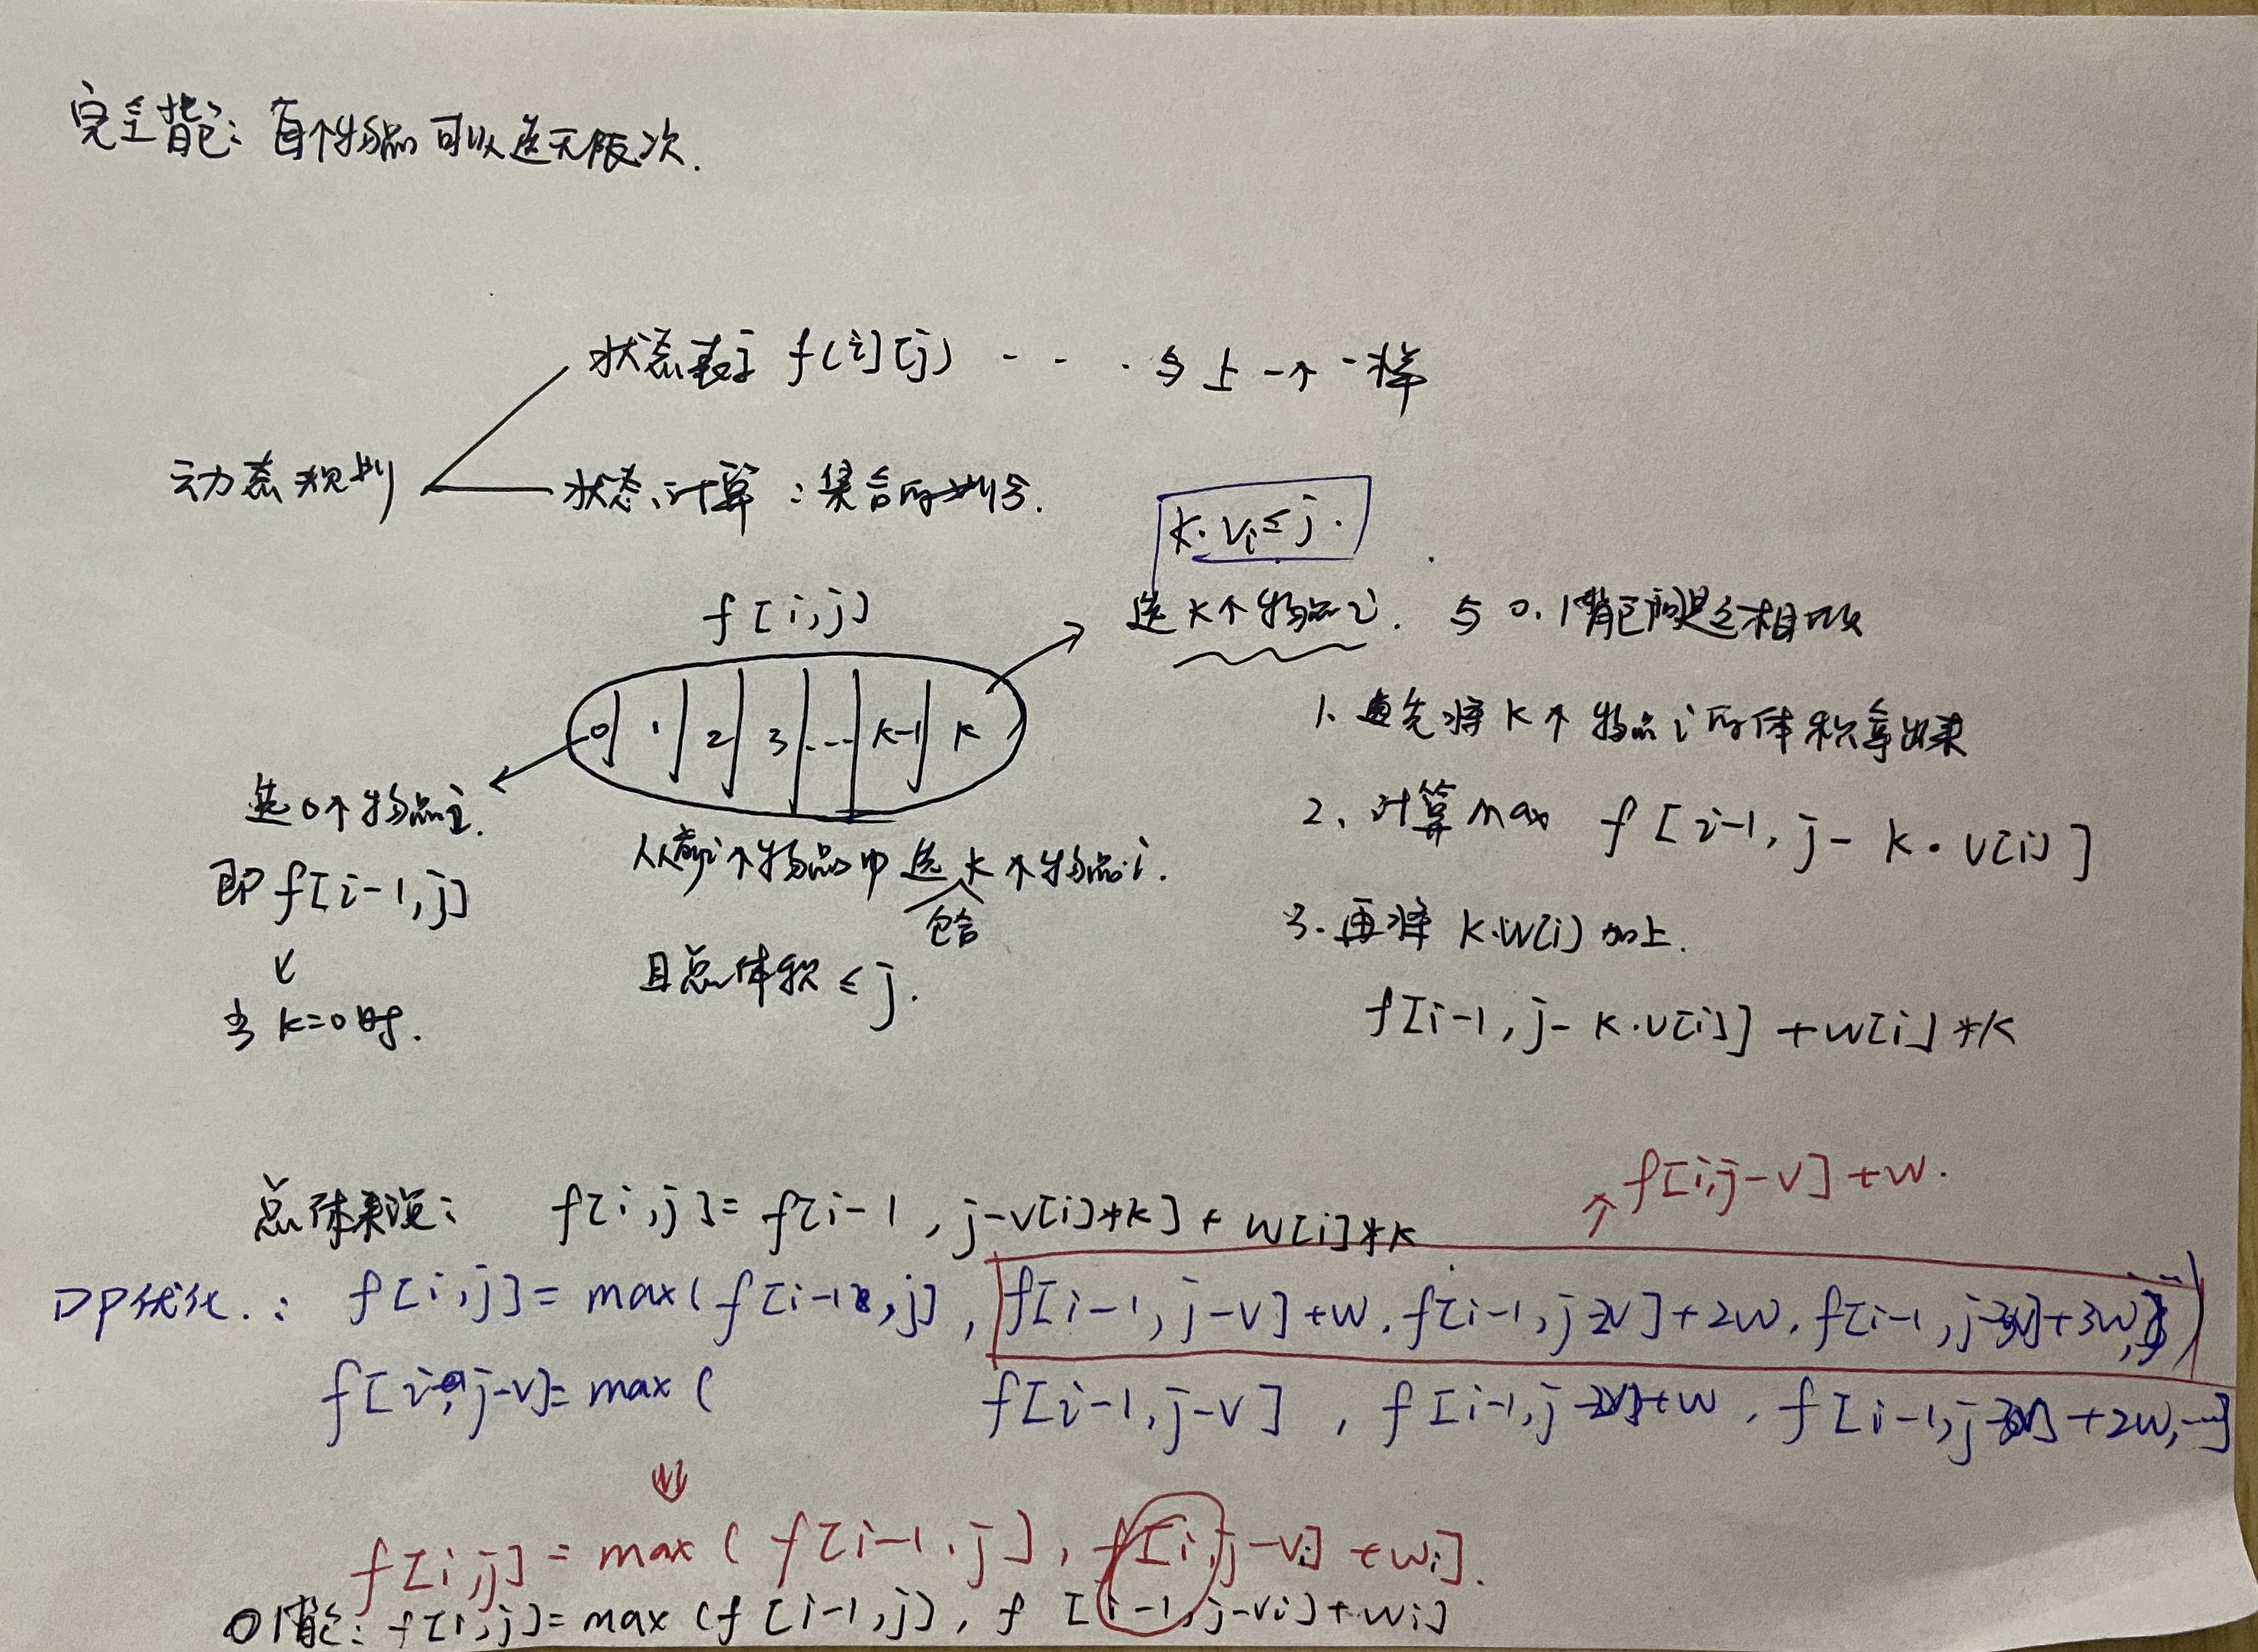 完全背包: 每个物品可以选无限次.
状态表示 f[i][j] - - . 与上一个一样
动态规划
状态计算 : 集合的划分.
k·vi≤j.
f[i,j]
选k个物品i. 与0.1背包问题相似
0 1 2 3 ... k-1 k
1、首先将k个物品i的体积算出来
选0个物品i.
2、计算max f[i-1, j-k·v[i]]
从前i个物品中选k个物品i.
包含
即f[i-1,j]
3.再将 k·w[i] 加上.
且总体积≤j.
当k=0时.
f[i-1, j-k·v[i]] + w[i]*k
f[i,j-v]+w.
总体来说: f[i,j]= f[i-1, j-v[i]*k] + w[i]*k
DP优化.: f[i,j]= max(f[i-1,j], f[i-1,j-v]+w, f[i-1,j-2v]+2w, f[i-1,j-3v]+3w, ...)
f[i,j-v]= max( f[i-1,j-v], f[i-1,j-2v]+w, f[i-1,j-3v]+2w,...]
f[i,j] = max( f[i-1,j], f[i,j-vi] +wi].
01背包: f[i,j]= max(f[i-1,j], f[i-1,j-vi]+wi]